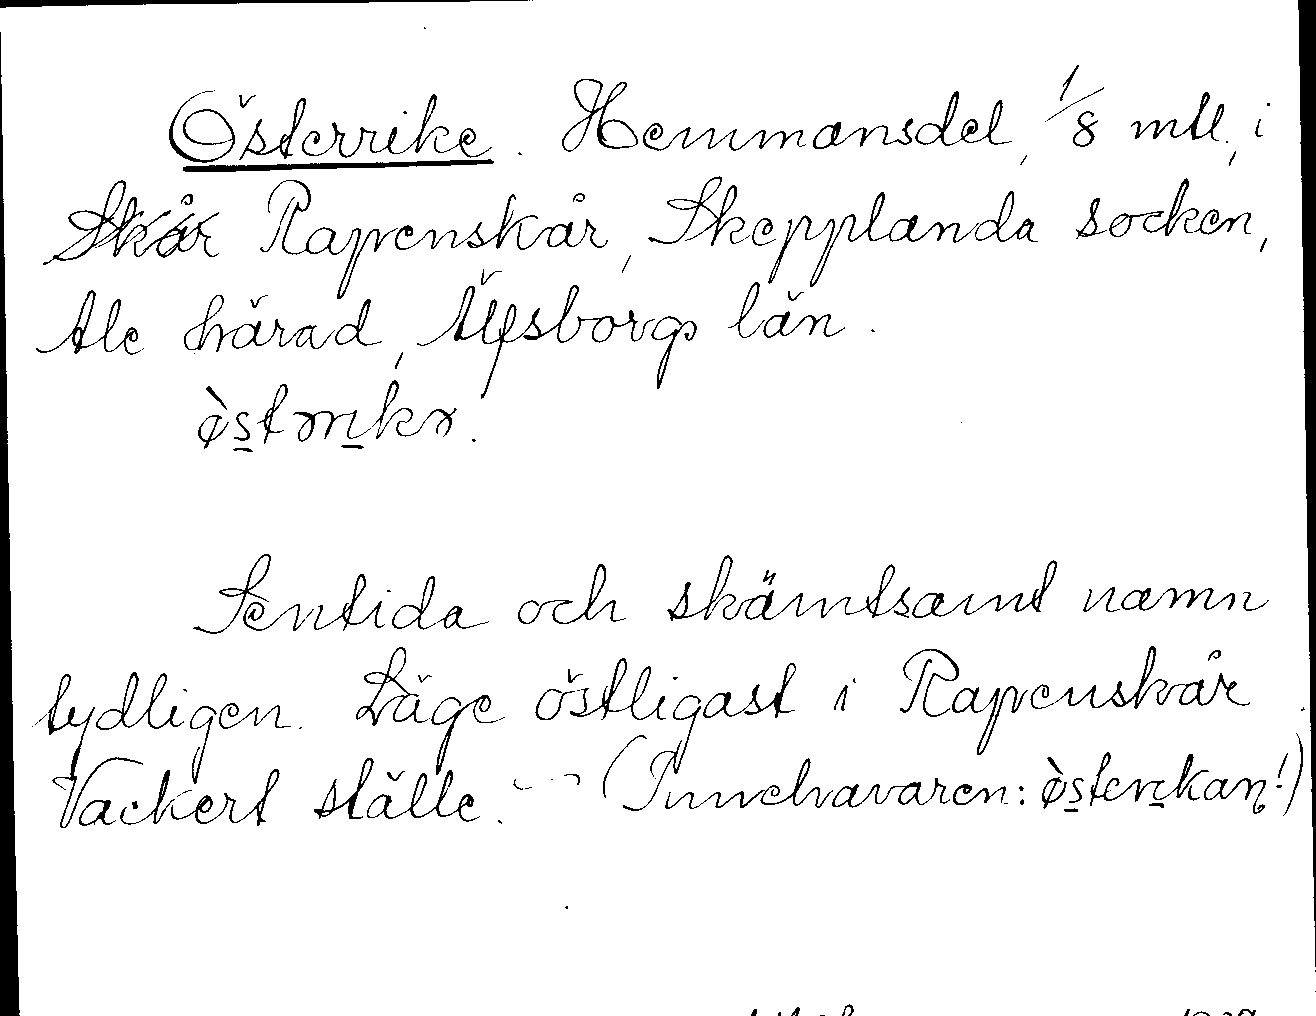 Österrike. Hemmansdel, 1/8 mtl., i
Skår Rapenskår, Skepplanda socken,
Ale härad, Älfsborgs län.
Sentida och skämtsamt namn
tydligen. Läge östligast i Rapenskår.
Vackert ställe. – (Innehavaren: